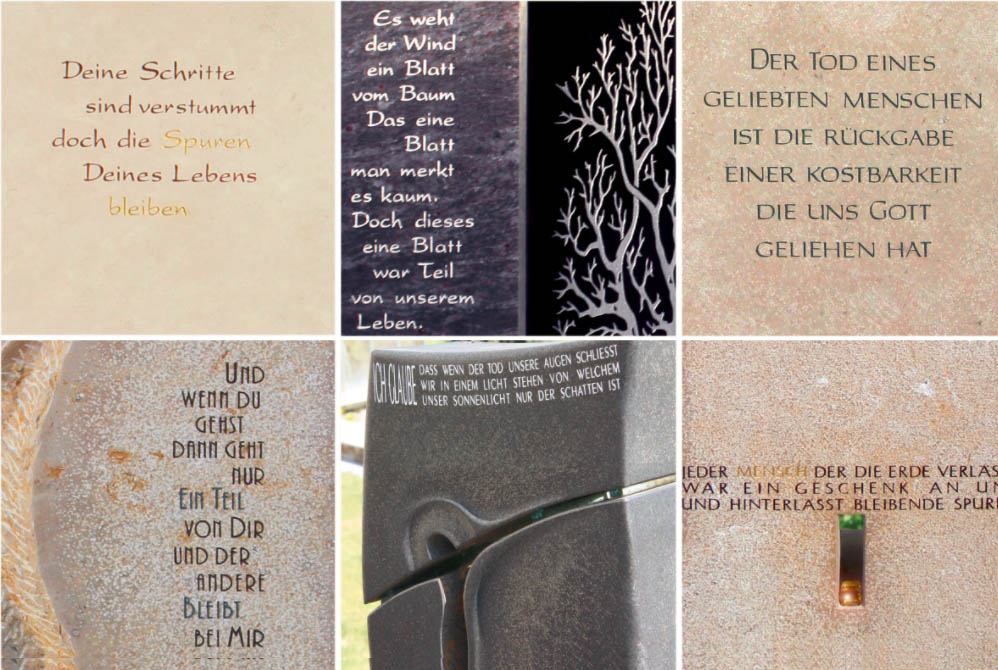 Deine Schritte
sind verstummt
doch die Spuren
Deines Lebens
bleiben
Es weht
der Wind
ein Blatt
vom Baum
Das eine
Blatt
man merkt
es kaum.
Doch dieses
eine Blatt
war Teil
von unserem
Leben.
DER TOD EINES
GELIEBTEN MENSCHEN
IST DIE RÜCKGABE
EINER KOSTBARKEIT
DIE UNS GOTT
GELIEHEN HAT
UND
WENN DU
GEHST
DANN GEHT
NUR
EIN TEIL
VON DIR
UND DER
ANDERE
BLEIBT
BEI MIR
ICH GLAUBE DASS WENN DER TOD UNSERE AUGEN SCHLIESST
WIR IN EINEM LICHT STEHEN VON WELCHEM
UNSER SONNENLICHT NUR DER SCHATTEN IST
JEDER MENSCH DER DIE ERDE VERLÄS
WAR EIN GESCHENK AN UN
UND HINTERLÄSST BLEIBENDE SPUR